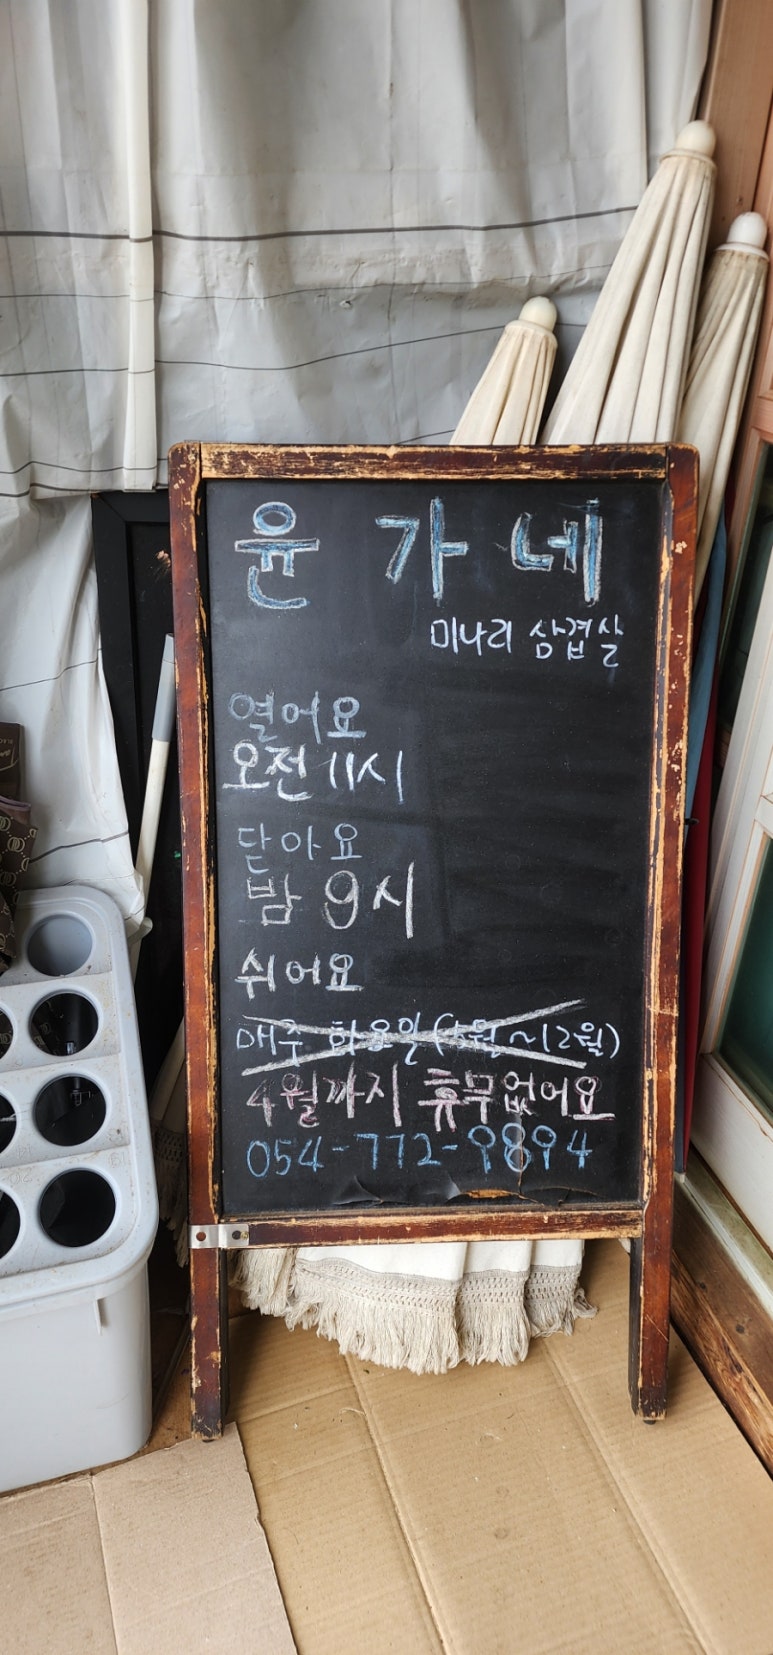 윤가네
미나리 삼겹살
열어요
오전 11시
닫아요
밤 9시
쉬어요
매주 화요일 (5월~12월)
4월까지 휴무없어요
054-772-9894